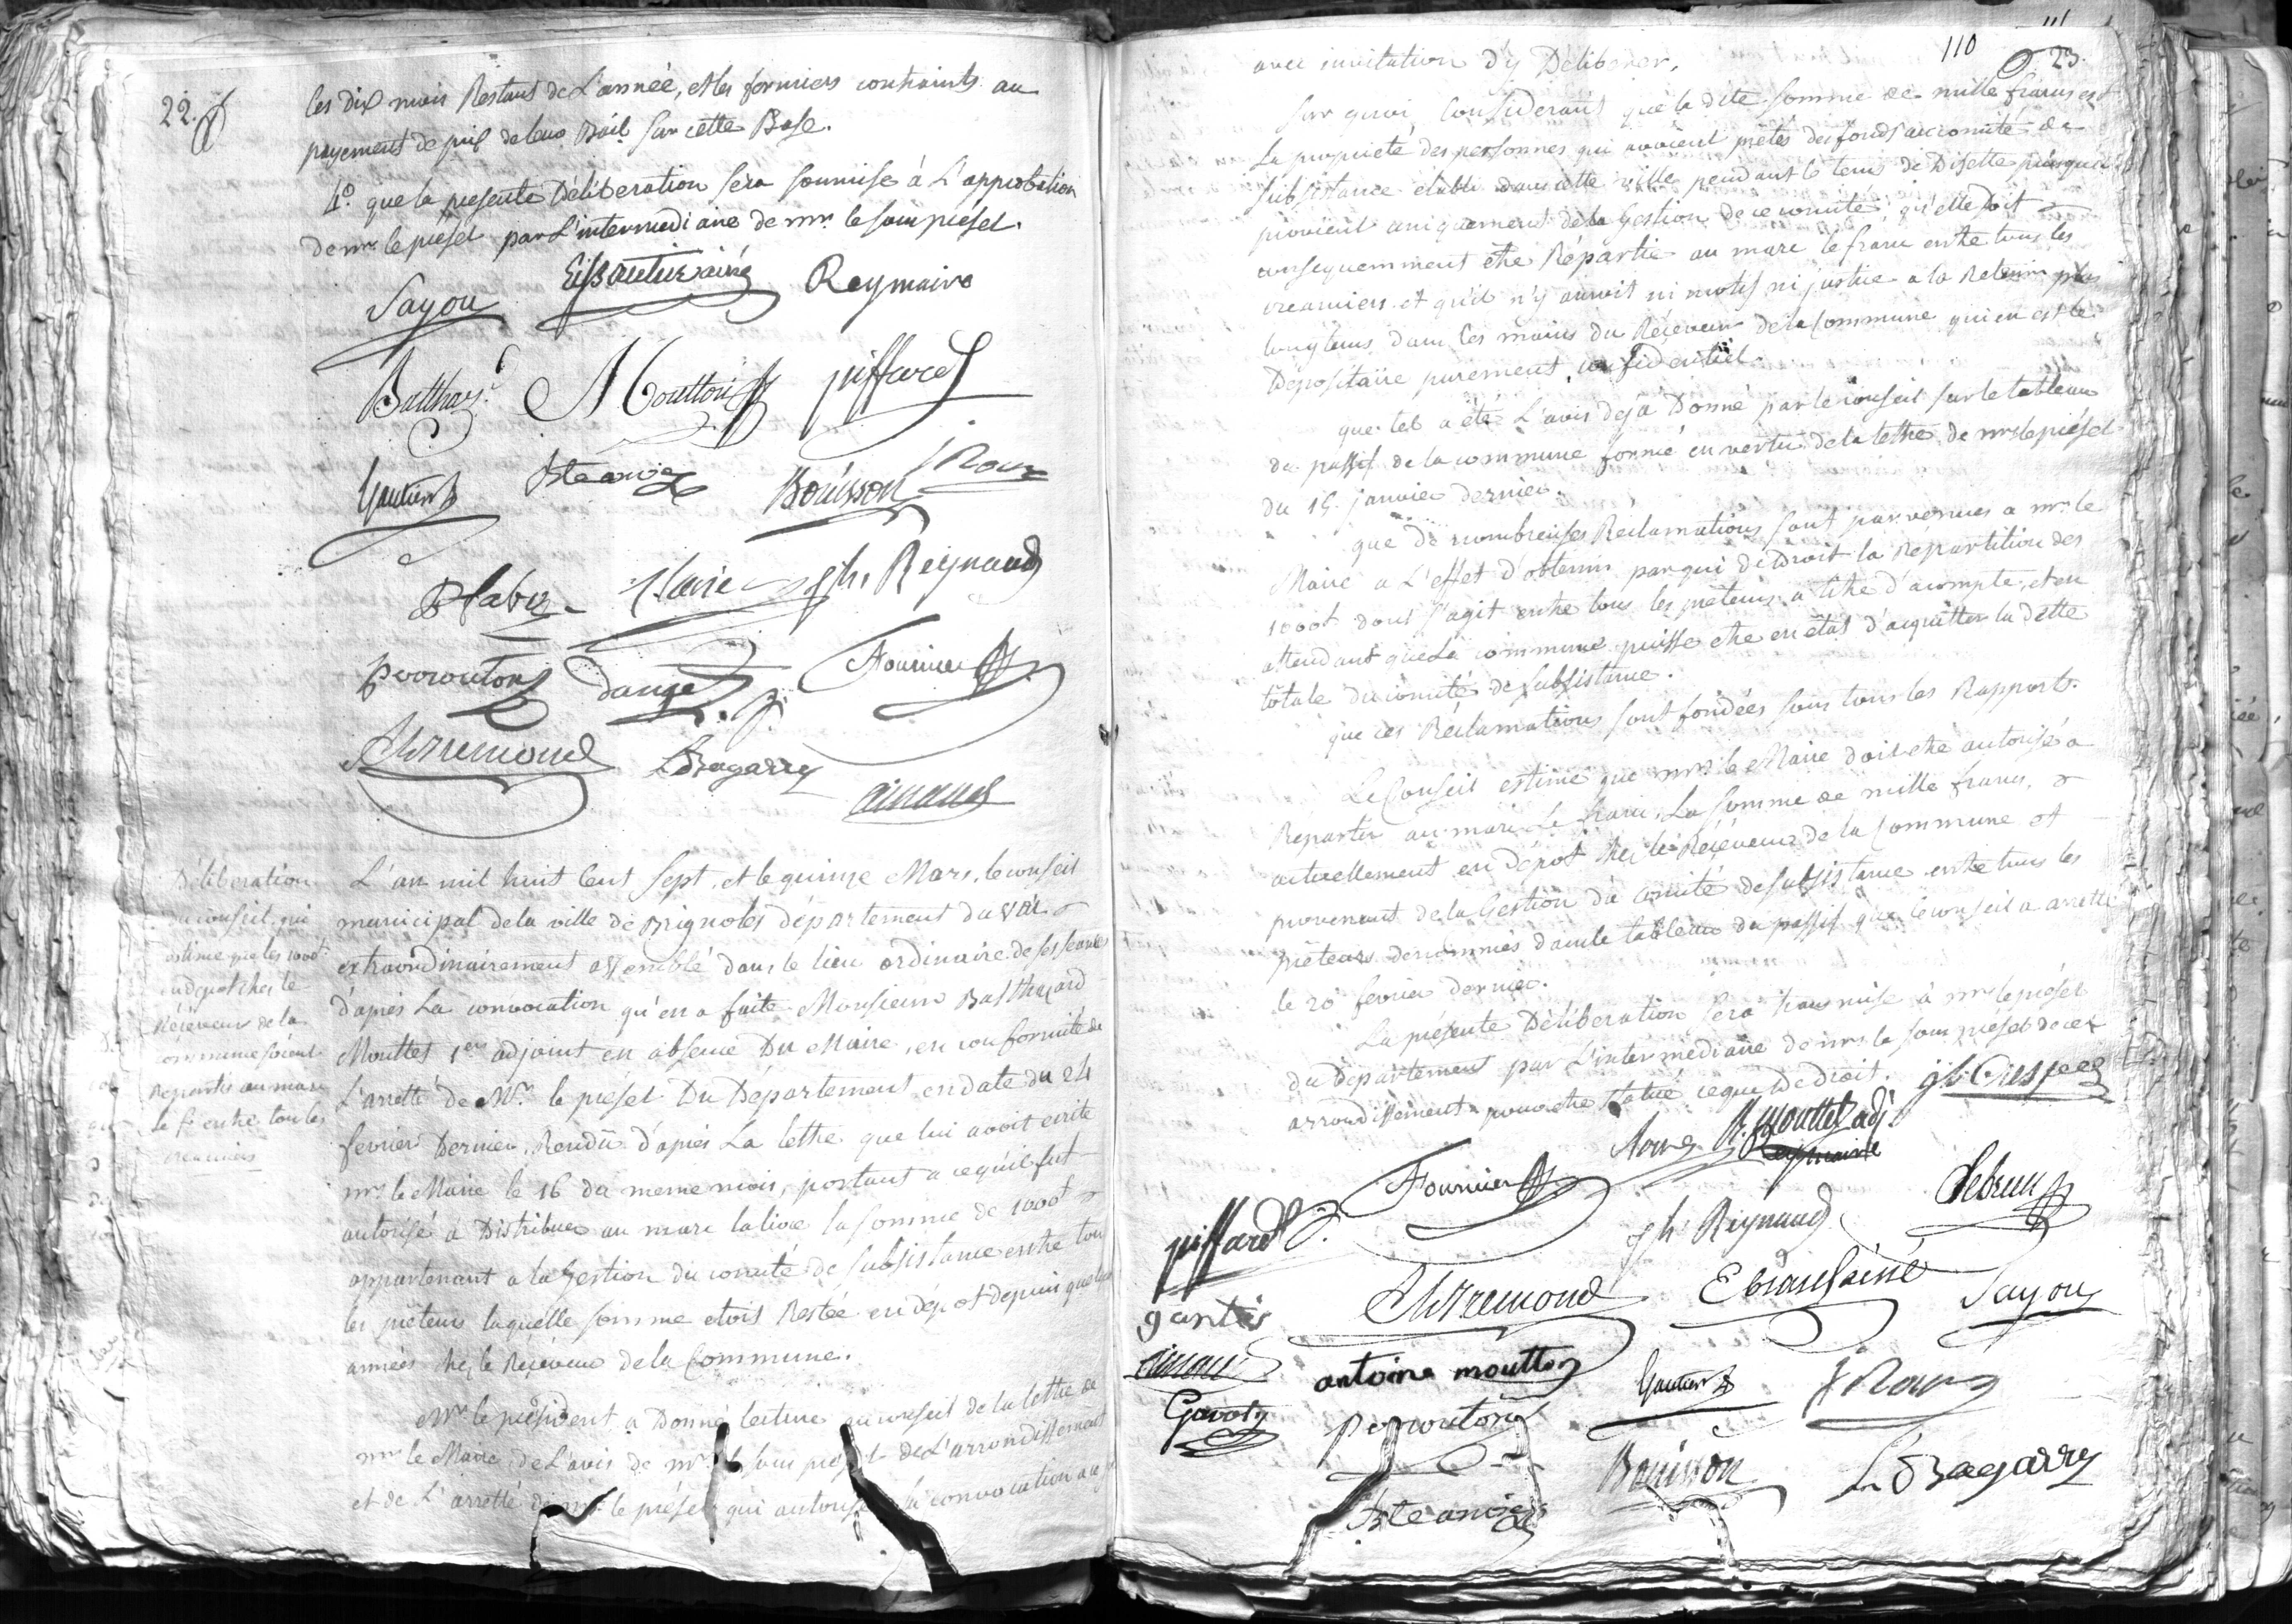 22.
les dix mois Restans de L'année, et les fermiers contraints au
payement de prix de leur Bail sur cette Base.
4º. que la presente Déliberation sera soumise à L'approbation
de mr. le prefet par L'intermediaire de mr. le sous prefet.
Sayou Eissautier ainé Reymaire
Balthar. Moutton piffard
Gautier Bouisson J Roux
Maire Jh. Reynaud
perrouton danse Fournier
L Bagarry
Déliberation
du conseil qui
estime que les 1000f
en depot chez le
Réceveur de la
commune soient
Repartis au marc
le f. entre tous les
creanciers
L'an mil huit Cent Sept, et le quinze Mars, le conseil
municipal de la ville de Brignoles département du var
extraordinairement assemblé dans le lieu ordinaire de ses seances
d'après La convocation qu'en a faite Monsieur Balthazard
Mouttet 1er adjoint en absence Du Maire, en conformité de
L'arretté de Mr. le préfet Du Département en date du 24
fevrier Dernier, Rendû d'après La lettre que lui avoit ecrite
mr. le Maire le 16 du meme mois, portant a ce qu'il fut
autorisé à Distribuer au marc la livre la somme de 1000f
appartenant a la Gestion du comité de subsistance entre tous
les prêteurs laquelle somme etoit Restée en dépot depuis quelques
années chez le Réceveur de la Commune.
Mr. le président a Donné lecture au conseil de la lettre de
mr. le Maire, de L'avis de mr. le sous prefet de L'arrondissement
et de L'arretté de mr. le préfet qui autorise la convocation au
110
111
23.
avec invitation d'y Déliberer.
Sur quoi Considerant que la dite somme de mille francs est
La proprieté des personnes qui avoient prêtés des fonds au comité de
subsistance etabli dans cette ville pendant le tems de Disette puisqu'elle
provient uniquement de la Gestion de ce comité, qu'elle doit
consequemment etre Répartie au marc le franc entre tous les
creanciers et qu'il n'y auroit ni motif ni justice a la Retenir plus
longtems dans les mains du Réceveur de la Commune qui en est le
Dépositaire purement confidentiel.
que tel a été L'avis déja Donné par le conseil sur le tableau
du passif de la commune formé en vertu de la lettre de mr. le préfet
du 15 janvier dernier.
que de nombreuses Réclamations sont parvenues a mr. le
Maire a L'effet d'obtenir par qui de Droit la Repartition des
1000f dont s'agit entre tous les prêteurs a titre d'acompte, et en
attendant que La commune puisse etre en état d'acquitter la dette
totale du comité de subsistance.
que ces Réclamations sont fondées sous tous les Rapports.
Le Conseil estime que mr. le Maire doit etre autorisé a
Répartir au marc le franc, La somme de mille francs,
actuellement en dépot chez le Réceveur de la Commune et
provenant de la Gestion du comité de subsistance entre tous les
prêteurs denommés dans le tableau du passif que le conseil a arretté
le 20 fevrier dernier.
La présente Déliberation sera transmise à mr. le préfet
du Département par L'intermédiaire de mr. le sous préfet de cet
arrondissement pour etre statué ce que de droit.
B. Mouttet adj
Reymaire
Fournier
piffard Jh. Reynaud Lebrun
Sayou
antoine moutton Gautier J Roux
Gavoty perrouton
Bouisson L Bagarry